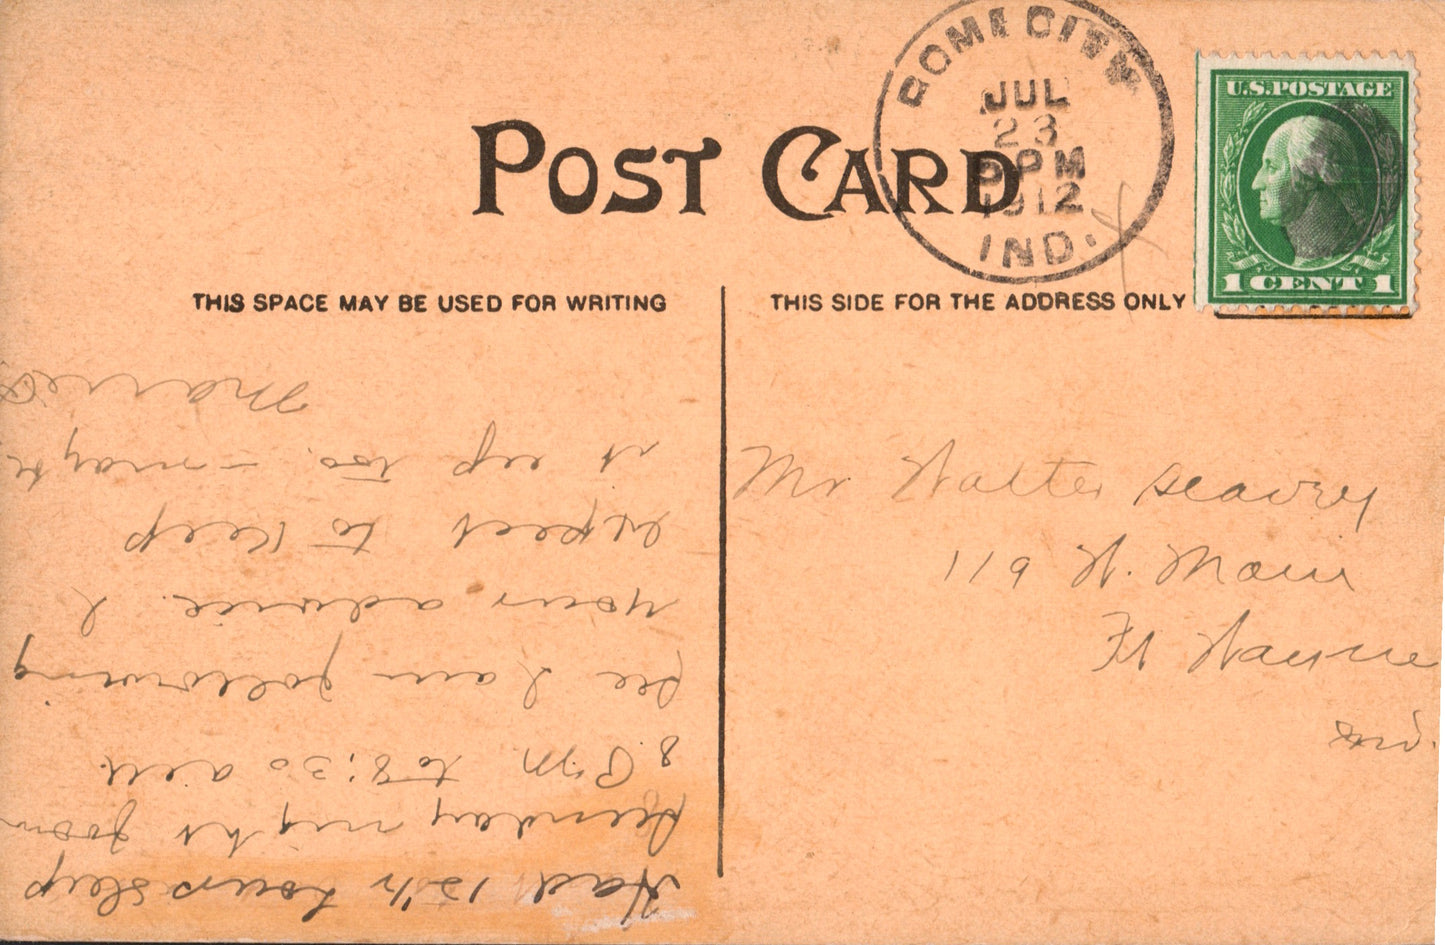 ROME CITY
JUL
23
PM
1912
IND.
U.S. POSTAGE
1 CENT 1
POST CARD
THIS SPACE MAY BE USED FOR WRITING
THIS SIDE FOR THE ADDRESS ONLY
Had 12½ hours sleep
Sunday night from
8. P.M. to 8:30 a.m.
See I am following
your advice. I
expect to keep
it up too. – maybe
Mr Walter Seavey
119 W. Main
Ft Wayne
Ind.